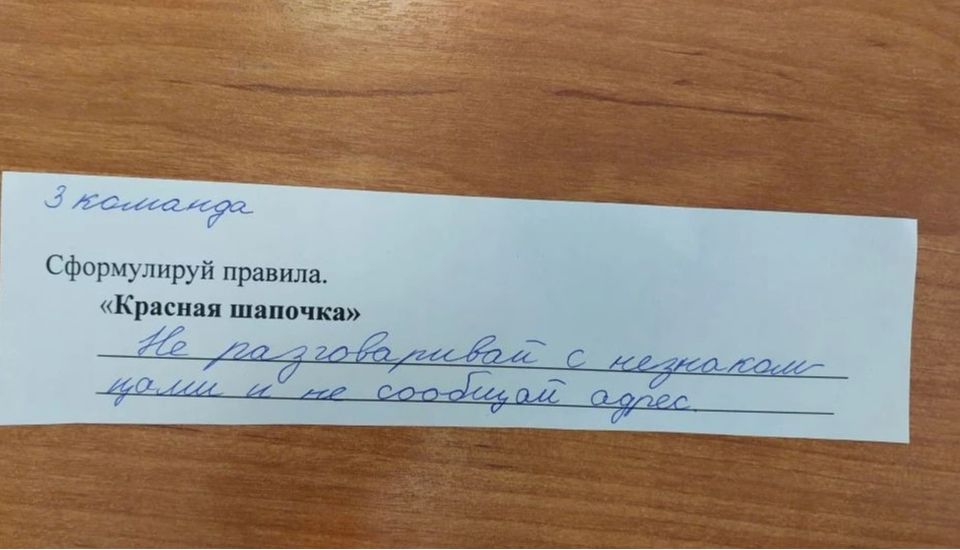 3 команда
Сформулируй правила.
«Красная шапочка»
Не разговаривай с незнаком-
цами и не сообщай адрес.